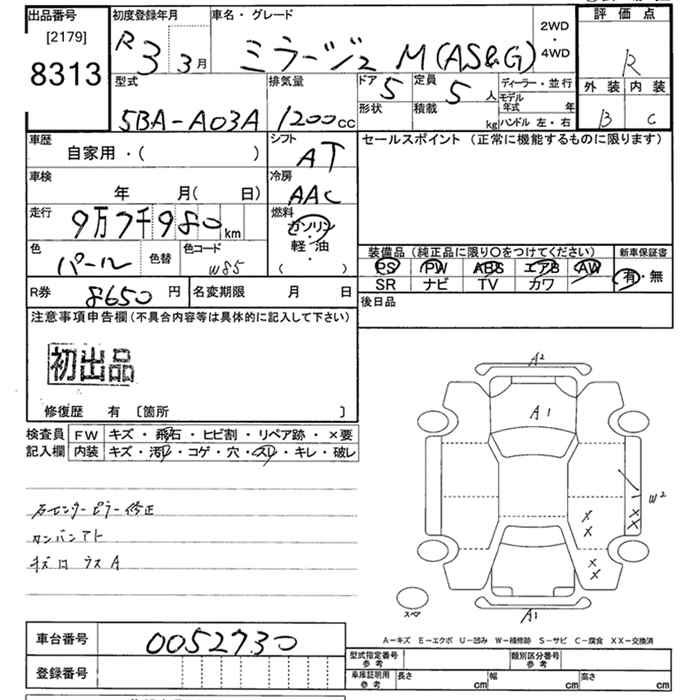 出品番号 初度登録年月 車名・グレード 評価点
[2179]
8313
R3 3月 ミラージュ M(AS&G) 2WD・4WD R
型式 排気量 ドア 5 定員 5人 ディーラー・並行 外装 内装
5BA-A03A 1200cc 形状 積載 kg モデル年式 年 B C
ハンドル 左・右
車歴 シフト セールスポイント (正常に機能するものに限ります)
自家用・( ) AT
車検 冷房
年 月( 日) AAC
走行 燃料
9万7千980km ガソリン
軽・油
色 色替 色コード
パール W85 ・( )
装備品 (純正品に限り○をつけてください) 新車保証書
PS PW ABS エアB AW 有・無
SR ナビ TV カワ
R券 8650円 名変期限 月 日 後日品
注意事項申告欄 (不具合内容等は具体的に記入して下さい)
初出品
修復歴 有 〔箇所 〕
検査員 FW キズ・飛石・ヒビ割・リペア跡・×要
記入欄 内装 キズ・汚れ・コゲ・穴・スレ・キレ・破レ
右センターピラー修正
カンバンアト
キズ ロ ラス A
A2
A1
W2
X X
X X
X X
スペア
A1
A-キズ E-エクボ U-凹み W-補修跡 S-サビ C-腐食 XX-交換済
車台番号 0052730
型式指定番号 参考 類別区分番号 参考
登録番号
車庫証明用 参考 長さ cm 幅 cm 高さ cm